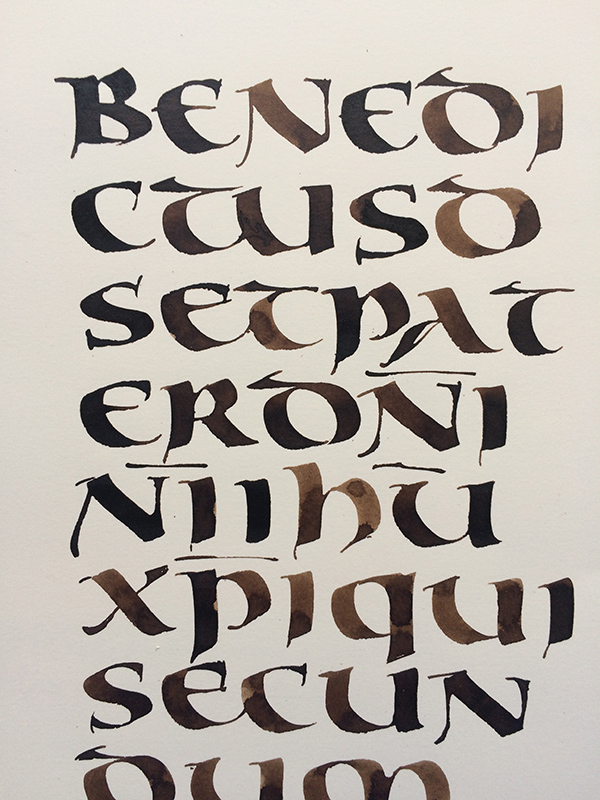 BENEDI
CTUSD
SETPAT
ERDN̅I̅
NI̅IHU̅
XP̅I̅QUI
SECUN
DUM